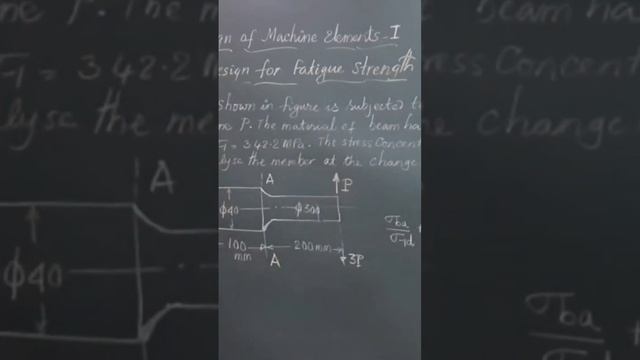 gn of Machine Elements-I
esign for Fatigue Strength
shown in figure is subjected to
ne P. The material of beam ha
= 342.2 MPa. The stress Concent
lyse the member at the change
A
A
P
ϕ40
ϕ30
100 mm
200 mm
A
3P
σba